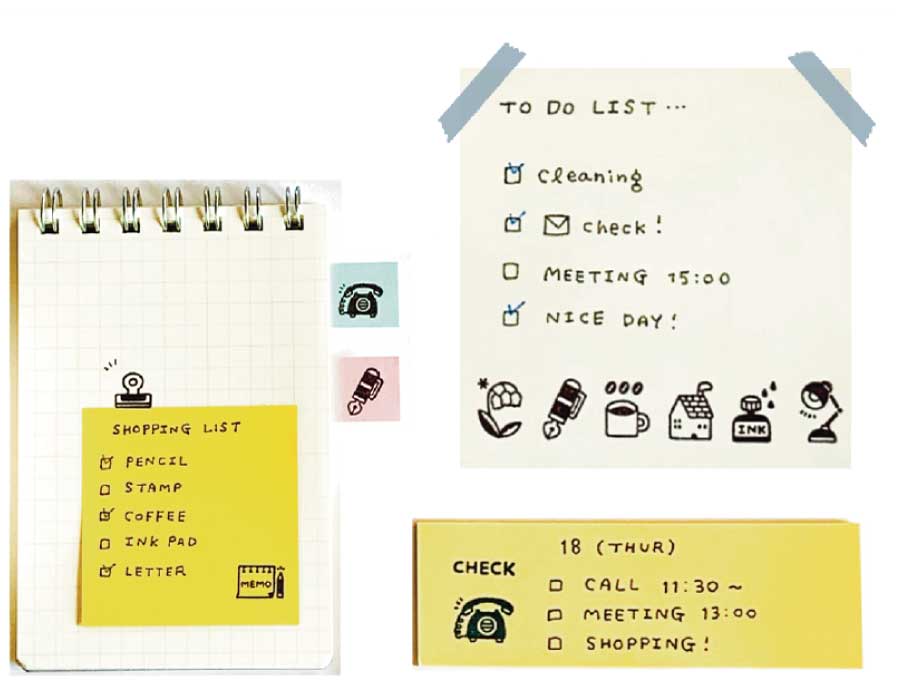 TO DO LIST...
Cleaning
check!
MEETING 15:00
NICE DAY!
INK
SHOPPING LIST
PENCIL
STAMP
COFFEE
INK PAD
LETTER
MEMO
18 (THUR)
CHECK
CALL 11:30 ~
MEETING 13:00
SHOPPING!